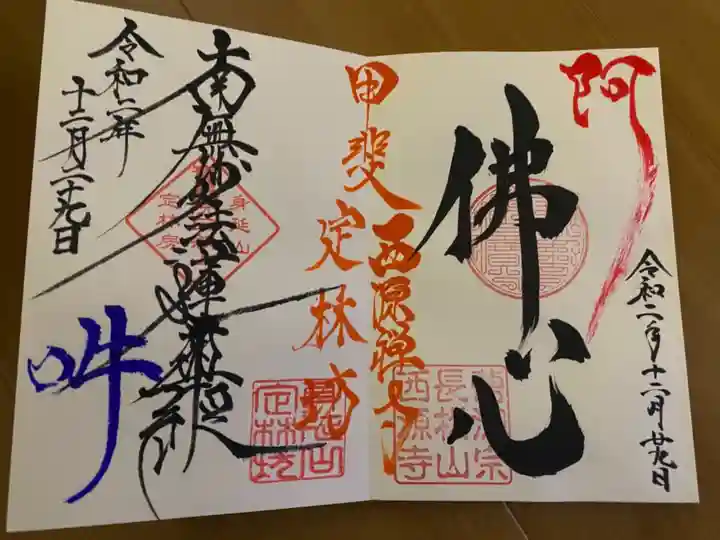 阿
佛心
令和二年十二月廿九日
甲斐西源禅寺
定林坊
曹洞宗
長松山
西源寺
南無妙法蓮華経
身延山
定林坊
身延山
定林坊
令和二年
十二月二十九日
吽